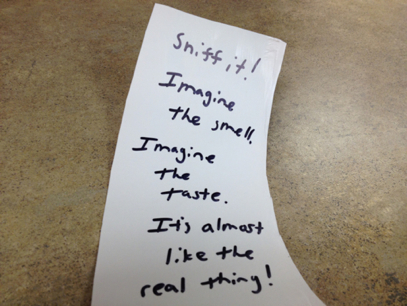 Sniff it!
Imagine
the smell.
Imagine
the
taste.
It's almost
like the
real thing!